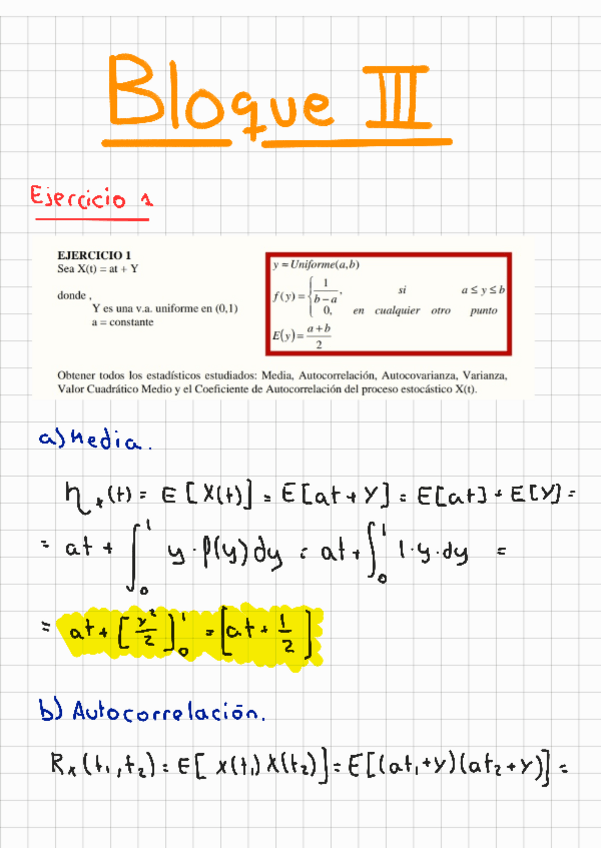 Bloque III
Ejercicio 1
EJERCICIO 1
Sea X(t) = at + Y
donde ,
Y es una v.a. uniforme en (0,1)
a = constante
y = Uniforme(a,b)
f(y) = { 1/(b−a), si a ≤ y ≤ b
0, en cualquier otro punto
E(y) = (a+b)/2
Obtener todos los estadísticos estudiados: Media, Autocorrelación, Autocovarianza, Varianza,
Valor Cuadrático Medio y el Coeficiente de Autocorrelación del proceso estocástico X(t).
a) Media.
η_x(t) = E[X(t)] = E[at + Y] = E[at] + E[Y] =
= at + ∫₀¹ y · f(y) dy = at + ∫₀¹ 1 · y · dy =
= at + [y²/2]₀¹ = [at + 1/2]
b) Autocorrelación.
R_x(t₁, t₂) = E[X(t₁) X(t₂)] = E[(at₁ + y)(at₂ + y)] =